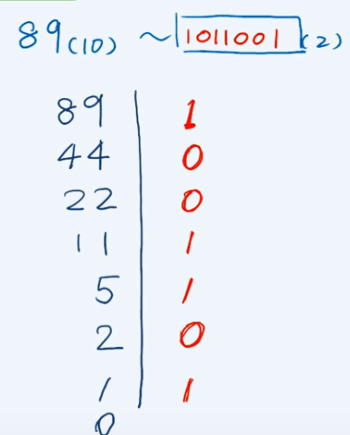 89(10) ~ 1011001 (2)
89 | 1
44 | 0
22 | 0
11 | 1
5 | 1
2 | 0
1 | 1
0